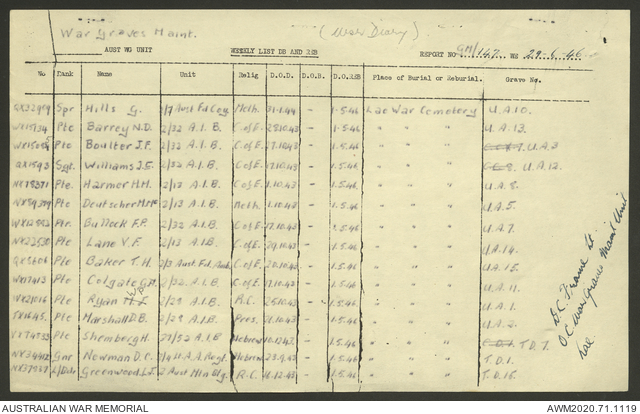 War Graves Maint.
(War Diary)
AUST WG UNIT WEEKLY LIST DB AND RSB REPORT NO GM/147 WE 29-6-46
No Rank Name Unit Relig D.O.D. D.O.B. D.O.RSB Place of Burial or Reburial. Grave No.
QX32989 Spr Hills G. 2/7 Aust Fd Coy Meth. 31.1.44 - 1.5.46 Lae War Cemetery U.A.10.
Pte Barrey N.D. 2/32 A.I.B. C of E. 28.10.43 - 1.5.46 " " " U.A.13.
Pte Boulter J.F. 2/32 A.I.B. C of E. 17.10.43 - 1.5.46 " " " U.A.3
Sgt. Williams J.E. 2/32 A.I.B. C of E. 17.10.43 - 1.5.46 " " " U.A.12.
Pte. Harmer H.H. 2/13 A.I.B. C of E. 1.10.43 - 1.5.46 " " " U.A.8.
Pte Deutscher 2/13 A.I.B. Meth. 1.10.43 - 1.5.46 " " " U.A.5.
Pte. Bullock F.P. 2/32 A.I.B. C of E. 17.10.43 - 1.5.46 " " " U.A.7.
NX22530 Pte Lane V.F. 2/13 A.I.B. C of E. 29.10.43 - 1.5.46 " " " U.A.14.
QX5606 Pte Baker T.H. 2/3 Aust. Fd. Amb. C of E. 20.10.43 - 1.5.46 " " " U.A.15.
WX17413 Pte Colgate 2/32 A.I.B. C of E. 17.10.43 - 1.5.46 " " " U.A.11.
WX21016 Pte Ryan 2/28 A.I.B. R.C. 25.10.43 - 1.5.46 " " " U.A.1.
Pte Marshall D.B. 2/28 A.I.B. Pres. 21.10.43 - 1.5.46 " " " U.A.2.
VX74533 Pte Shemberg H. 37/52 A.I.B. Hebrew 10.12.43 - 1.5.46 " " " T.D.7.
NX34412 Gnr Newman D.C. A.A. Regt. Hebrew 23.9.43 - 1.5.46 " " " T.D.1.
NX37957 L/Bdr Greenwood L.J. 2 Aust Mtn Btg. R.C. 16.12.43 - 1.5.46 " " " T.D.15.
D.C. Frame Lt
OC War Graves Maint Unit
Lae
AUSTRALIAN WAR MEMORIAL AWM2020.71.1119